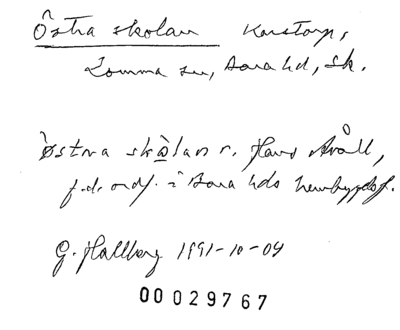 Östra skolan Karstorp,
Lomma sn, Bara hd, Sk.
östra skålan r. Hans Åvall,
f.d. ordf. i Bara hds hembygdsf.
G. Hallberg 1991-10-09
00029767